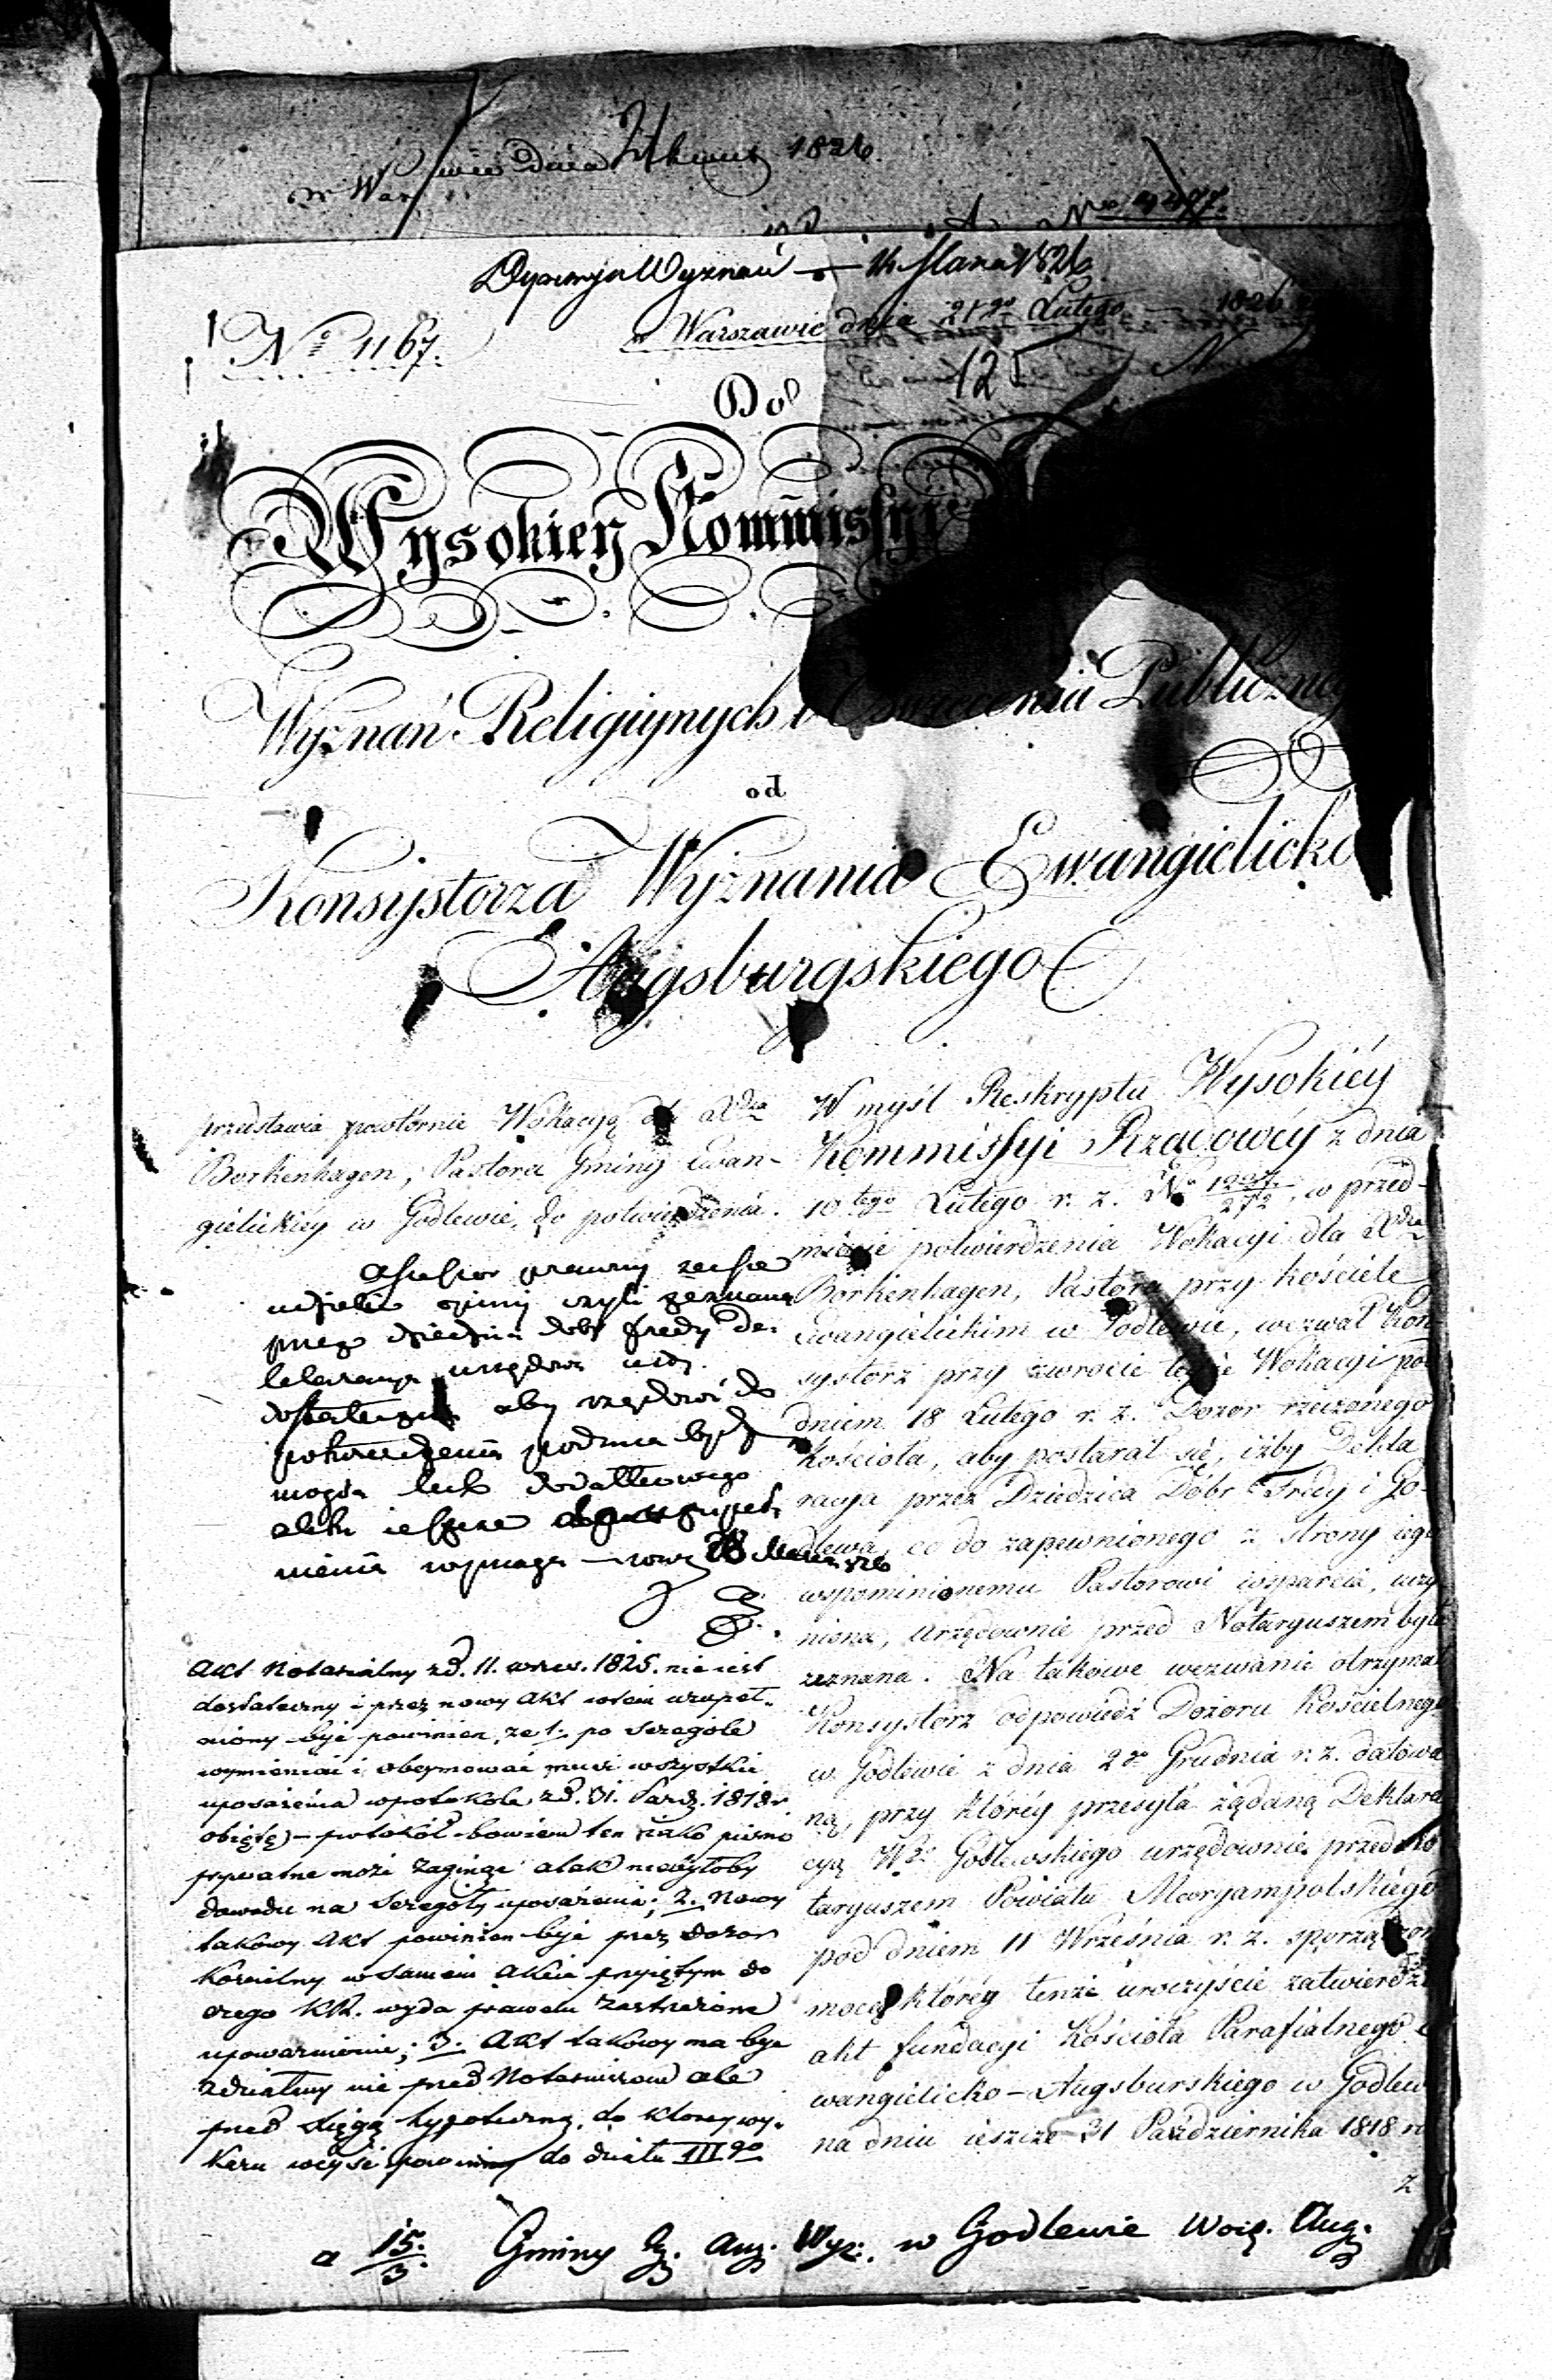 w Warszawie dnia 1826.
Nro
Dyrekcya Wyznań 14 Marca 1826
w Warszawie dnia 21go Lutego 1826
No 1167.
12
Do
Wysokiey Kommissyi
Wyznań Religiynych i Oswiecenia Publicznego
od
Konsystorza Wyznania Ewangielicko
Augsburgskiego
przedstawia powtórnie Wokacyą dla Xdza
Borkenhagen, Pastora Gminy Ewan-
gielickiéy w Godlewie, do potwierdzenia.
Assessor prawny zechce
udzielić opinij czyli zeznana
przez dziedzica dobr Fredy De-
klaracya urzędowa
dostateczna aby rządowi do
potwierdzenia podana bydź
mogła lub dodatkowego
aktu ieszcze uzupeł
nienia wymaga 28 Marca 826
Akt Notarialny z d. 11. wrzes. 1825. nie iest
dostateczny i przez nowy Akt uzupeł-
niony być powinien, że 1. po szczególe
wymieniać i obeymować musi wszystkie
uposażenia w protokole z d. 31. Paźdz. 1818 r
obięte) – protokół bowiem ten iako pismo
prywatne może zaginąć a tak nie byłoby
dowodu na szczegóły uposażenia; 2. Nowy
takowy Akt powinien być przez dozor
Kościelny w samem Akcie przyiętym do
czego KR. wyda prawem zastrzeżone
upoważnienie; 3. Akt takowy ma być
zdziałany nie przed Notariuszem ale
przed Xięgą hypoteczną, do ktorey wy-
kazu weyść powinny do działu III go
W myśl Reskryptu Wysokiéy
Kommissyi Rządowéy z dnia
10tego Lutego r. z. No , w przed-
miocie potwierdzenia Wokacyi dla Xdza
Borkenhagen, Pastora przy kościele
Ewangielickim w Godlewie, wezwał Kon-
systorz przy zwrocie teyże Wokacyi pod
dniem 18 Lutego r. z. Dozor rzeczonego
Kościoła, aby postarał się, iżby Dekla
racya przez Dziedzica Dóbr Fredy i Go-
dlewa, co do zapewnionego z strony iego
wspominionemu Pastorowi wsparcia, uczy
niona, urzędownie przed Notaryuszem była
zeznana. Na takowe wezwanie otrzymał
Konsystorz odpowiedź Dozoru Kościelnego
w Godlewie z dnia 2go Grudnia r. z. datowa
ną, przy któréy przesyła żądaną Deklara
cyą Wgo Godlewskiego urzędownie przed No
taryuszem Powiatu Maryampolskiégo
pod dniem 11 Września r. z. sporządzon
mocą któréy tenże uroczyście zatwierdza
akt fundacyi Kościoła Parafialnego E
wangielicko-Augsburskiego w Godlew
na dniu ieszcze 31 Października 1818 r
z
a 15./3. Gminy Ew. Aug. Wyz. w Godlewie Woię. Aug.